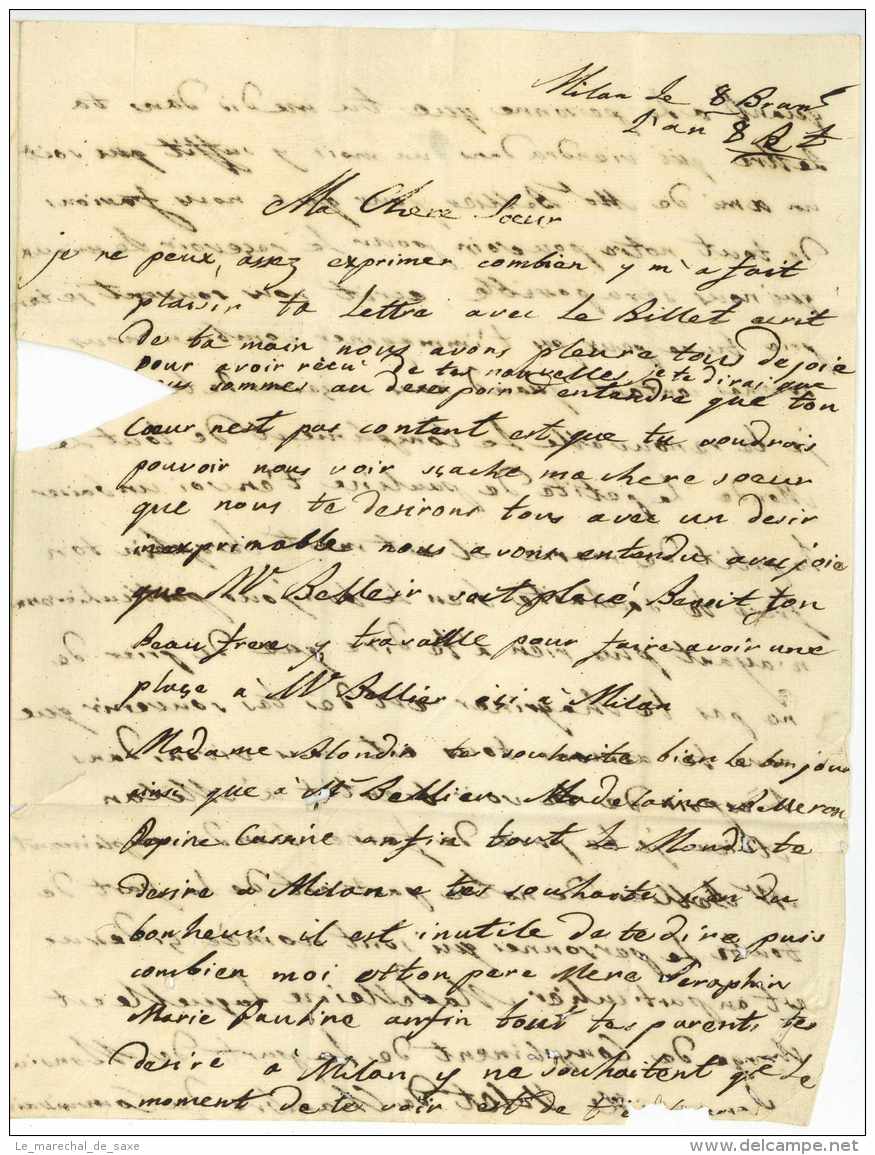 Milan le 8 Brum
L'an 8 R
Ma Chere Soeur
je ne peux, assez exprimer combien y m'a fait
plaisir ta Lettre avec Le Billet ecrit
De ta main nous avons pleure tous de joie
pour avoir recu De tes nouvelles je te dirai que
sommes au desespoir d'entendre que ton
Coeur nest pas content est que tu voudrois
pouvoir nous voir sçache ma chere soeur
que nous te desirons tous avec un desir
inexprimable nous avons entendu avec joie
que Mr Bellier soit placé, Benoit ton
Beau frere y travaille pour faire avoir une
plaçe a' Mr Bellier ici a' Milan
Madame Blondin te souhaite bien Le bonjour
ainsi que a' Mr Bellier Madelaine
Pepine enfin tout Le Monde te
desire a' Milan e tes souhaite bien du
bonheur. il est inutile de te dire puis
combien moi est ton pere Mere Seraphin
Marie Pauline enfin tout tes parents tes
desire a' Milan y ne souhaitent que Le
moment de te voir est de
Le_marechal_de_saxe
delcampe.net